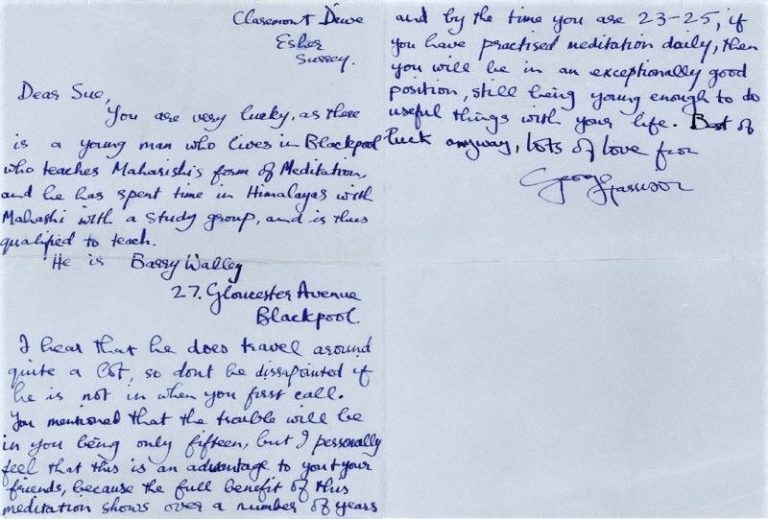 Claremont Drive
Esher
Surrey.
Dear Sue,
You are very lucky, as there
is a young man who lives in Blackpool
who teaches Maharishi's form of Meditation,
and he has spent time in Himalayas with
Mahashi with a study group, and is thus
qualified to teach.
He is Barry Walley
27. Gloucester Avenue
Blackpool.
I hear that he does travel around
quite a lot, so dont be dissapointed if
he is not in when you first call.
You mentioned that the trouble will be
in you being only fifteen, but I personally
feel that this is an advantage to you + your
friends, because the full benefit of this
meditation shows over a number of years
and by the time you are 23-25, if
you have practised meditation daily, then
you will be in an exceptionally good
position, still being young enough to do
useful things with your life. Best of
luck anyway, lots of love from
George Harrison